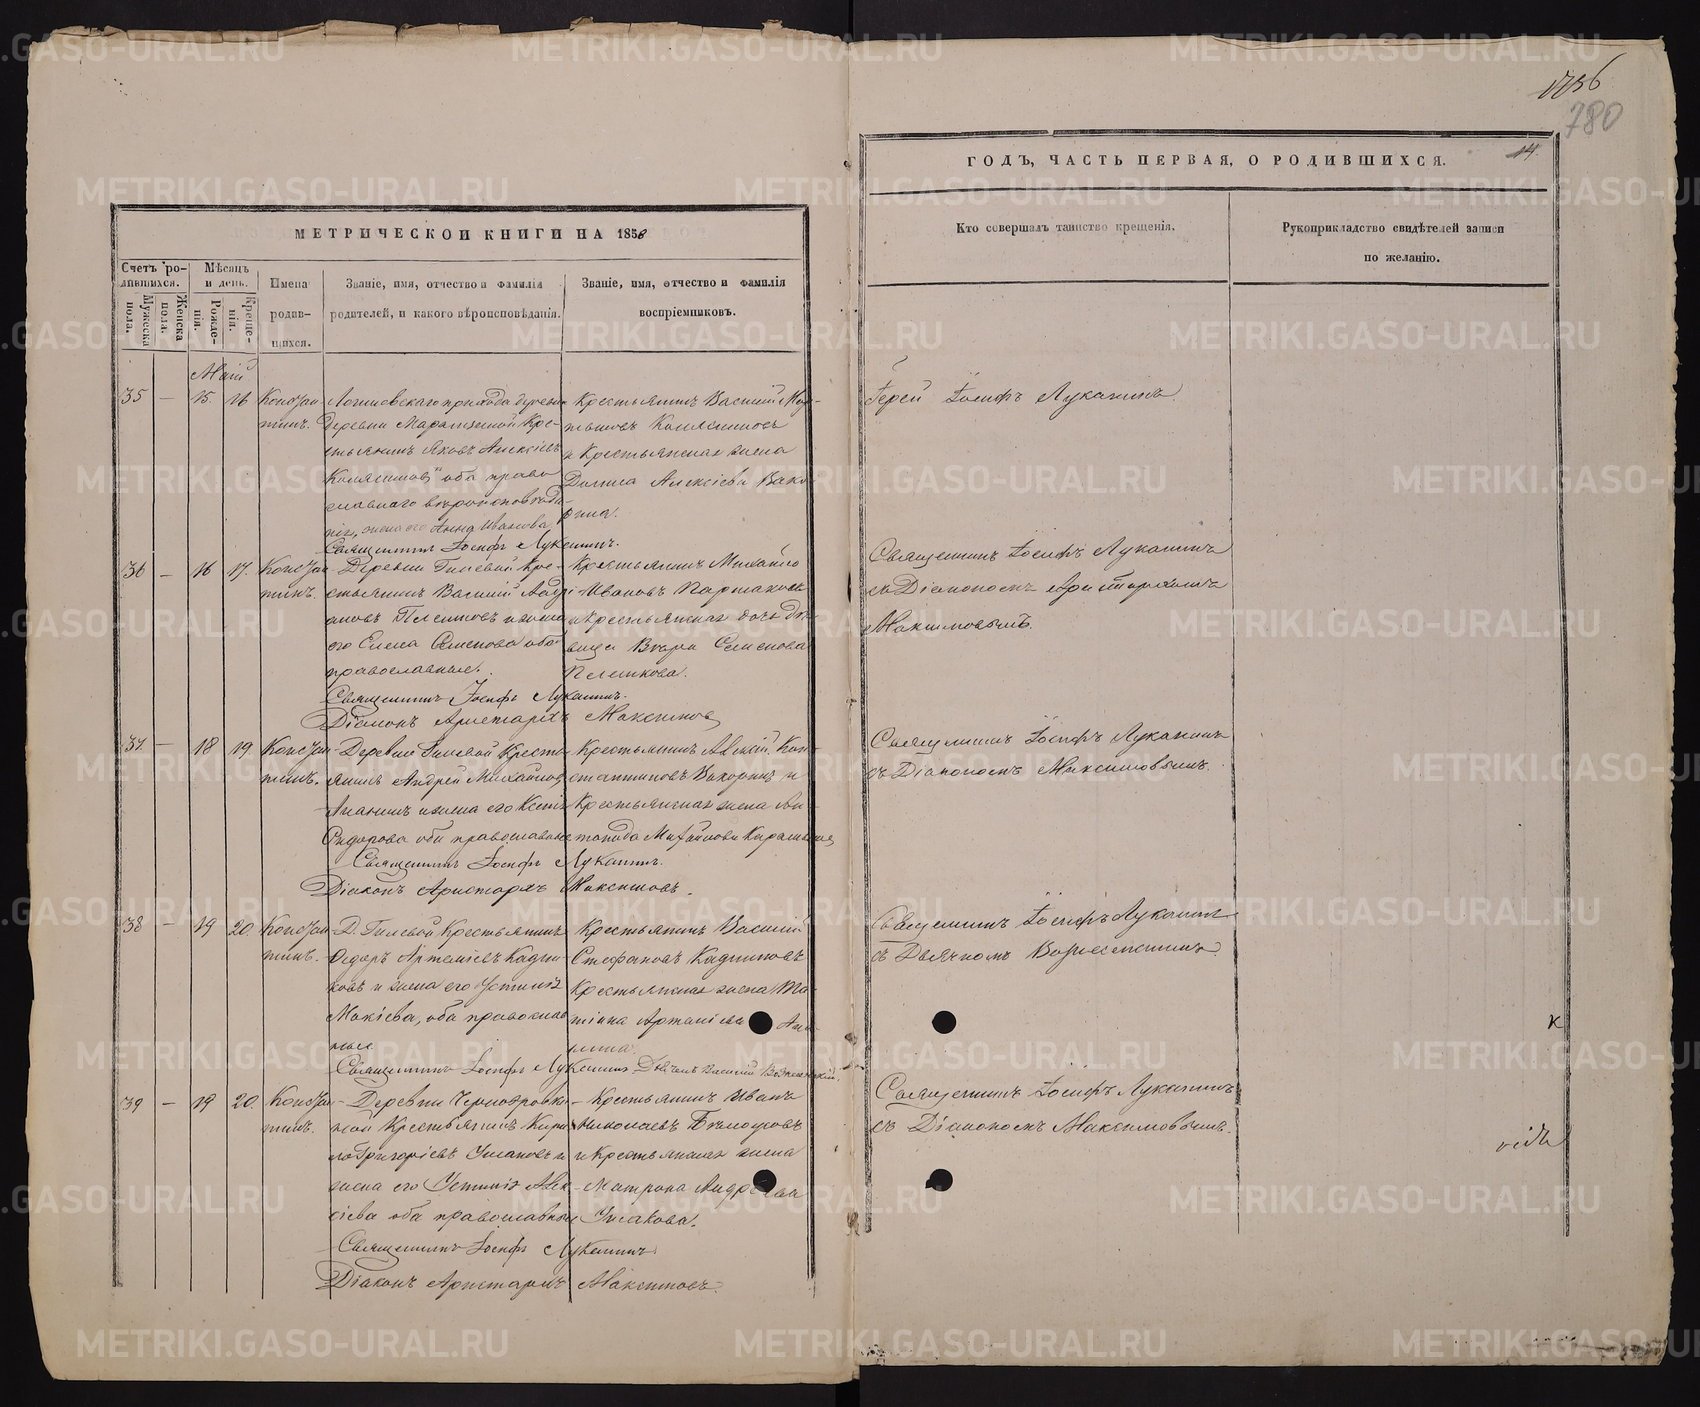 1756
780
14.
МЕТРИЧЕСКОИ КНИГИ НА 1856
ГОДЪ, ЧАСТЬ ПЕРВАЯ, О РОДИВШИХСЯ.
Счетъ ро-
дившихся.
Мужеска
пола.
Женска
пола.
Мѣсяцъ
и день.
Рожде-
нія.
Креще-
нія.
Имена
родив-
шихся.
Званіе, имя, отчество и фамилія
родителей, и какого вѣроисповѣданія.
Званіе, имя, отчество и фамилія
воспріемниковъ.
Кто совершалъ таинство крещенія.
Рукоприкладство свидѣтелей записи
по желанію.
Маій
35 — 15. 16
Констан
тинъ.
прихода
Деревни Кре-
стьянинъ Яковъ Алексіевъ
оба право
славнаго вѣроисповѣда
нія, жена его Анна Иванова
Священникъ Іосифъ Луканинъ.
Крестьянинъ Василий Мар-
и Крестьянская жена
Алексіева Вако
рина.
Іерей Іосифъ Луканинъ.
36 — 16 17.
Констан
тинъ.
Деревни Гилевой Кре-
стьянинъ Василий Андрі
ановъ и жена
его Елена Семенова оба
православные.
Священникъ Іосифъ Луканинъ.
Діаконъ Аристархъ Максимовъ
Крестьянинъ Михайло
Ивановъ
и Крестьянская дочь дѣ-
вица Вѣра Семенова
Пленкова.
Священникъ Іосифъ Луканинъ
съ Діакономъ Аристархомъ
Максимовымъ.
37. — 18 19.
Констан
тинъ.
Деревни Гилевой Кресть-
янинъ Андрей Михайловъ
Ананьинъ и жена его Ксенія
Сидорова оба православные
Священникъ Іосифъ Луканинъ.
Діаконъ Аристархъ Максимовъ.
Крестьянинъ Алексій Кон-
стантиновъ Вакоринъ и
Крестьянская жена Ан-
Михайлова
Священникъ Іосифъ Луканинъ
съ Діакономъ Максимовымъ.
38 — 19 20.
Констан
тинъ.
Д. Гилевой Крестьянинъ
Федоръ Артеміевъ Кадни-
ковъ и жена его Устинія
Мокіева, оба православ
ные
Священникъ Іосифъ Луканинъ Дьячекъ Василій Вознесенскій.
Крестьянинъ Василій
Стефановъ Кадниковъ
Крестьянская жена Та-
тіана
Священникъ Іосифъ Луканинъ
съ Дьячкомъ Вознесенскимъ
к
39 — 19 20.
Констан
тинъ.
Деревни Черноскви-
ной Крестьянинъ Кири
ло Григоріевъ Ушаковъ и
жена его Устинія Алек-
сіева оба православные
Священникъ Іосифъ Луканинъ
Діаконъ Аристархъ Максимовъ.
Крестьянинъ Иванъ
Николаевъ Бѣлоусовъ
и Крестьянская жена
Матрона Андреева
Ушакова.
Священникъ Іосифъ Луканинъ
съ Діакономъ Максимовымъ.
METRIKI.GASO-URAL.RU